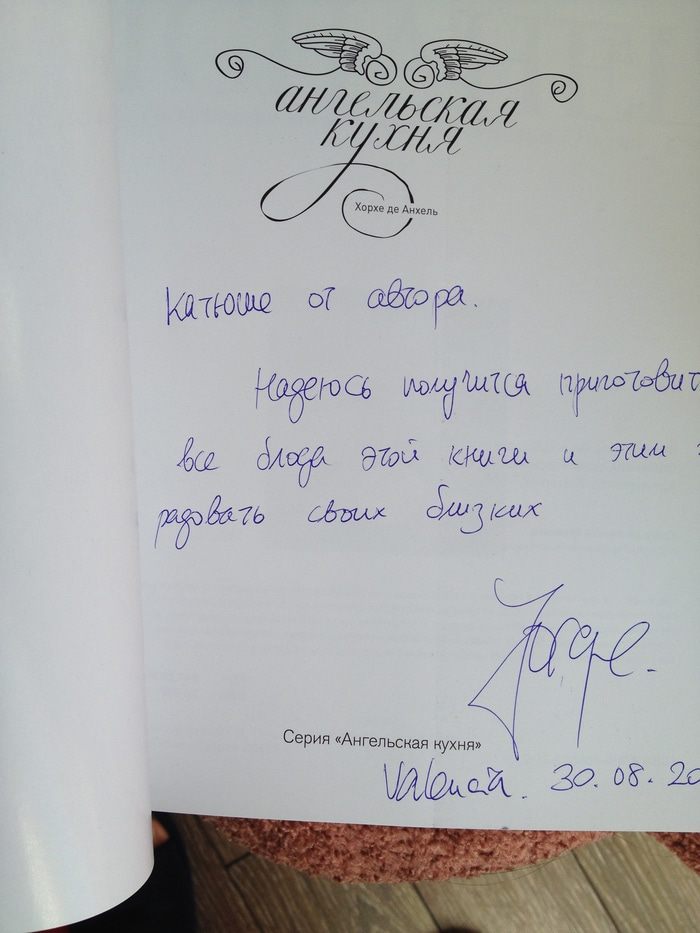 ангельская
кухня
Хорхе де Анхель
Катюше от автора.
Надеюсь получится приготовит
все блюда этой книги и этим
радовать своих близких
Jorge.
Серия «Ангельская кухня»
Valencia. 30.08.20